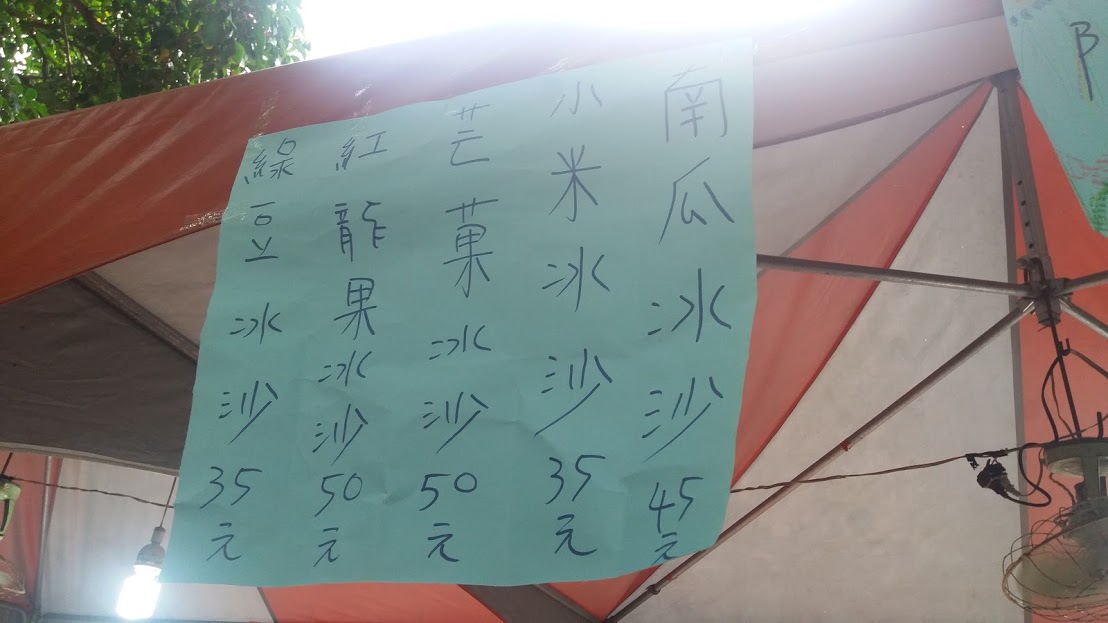 南瓜冰沙45元
小米冰沙35元
芒菓冰沙50元
紅龍果冰沙50元
綠豆冰沙35元
B